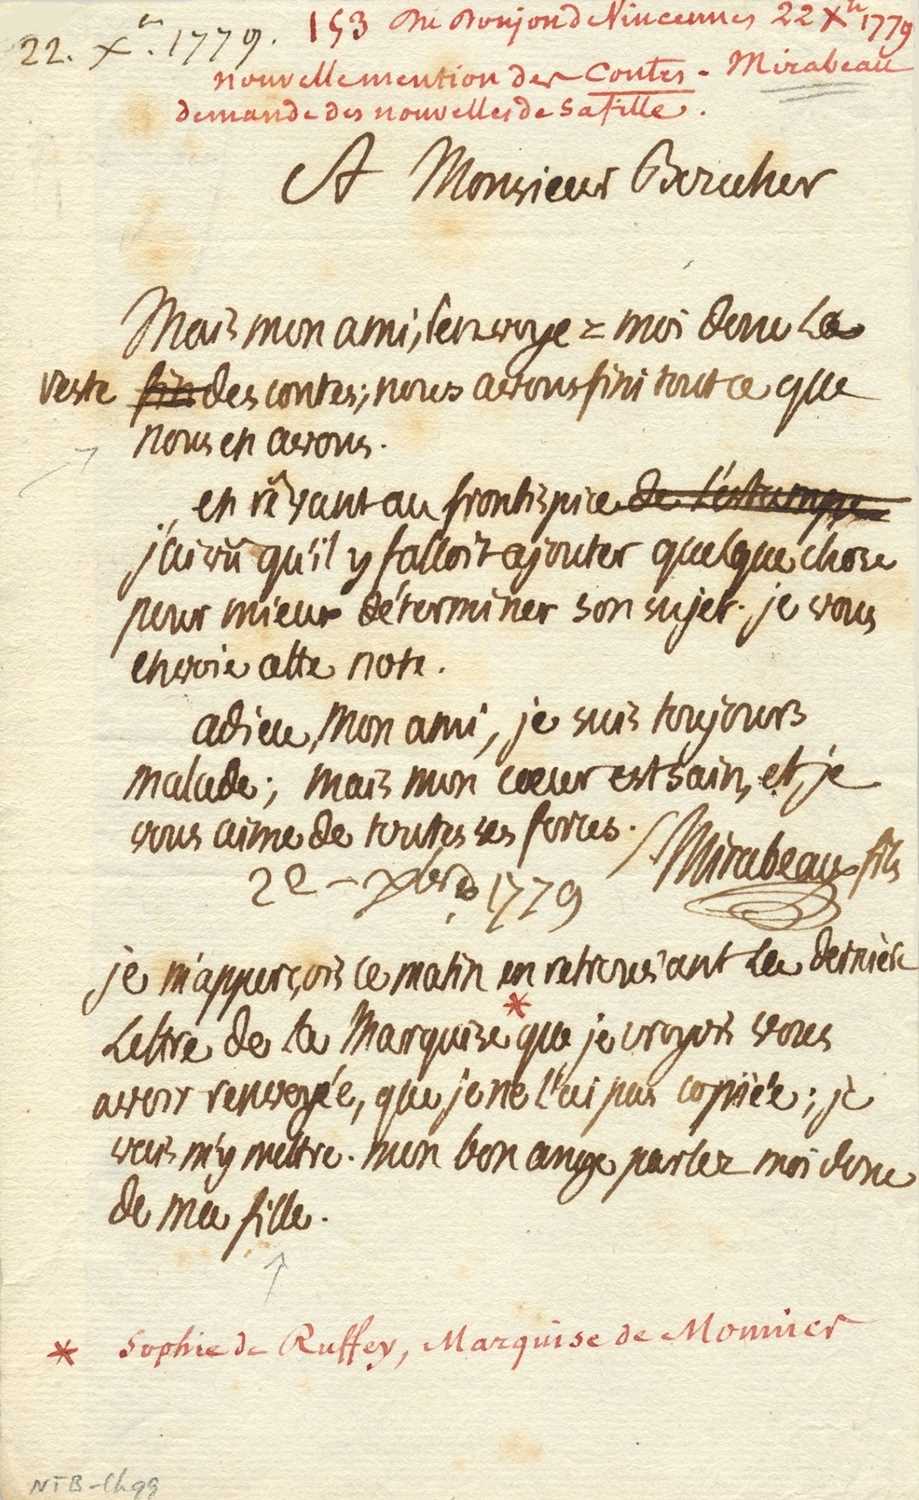 22. Xre. 1779. 153 Du Donjon de Vincennes 22 Xre 1779
nouvelle mention des Contes - Mirabeau
demande des nouvelles de sa fille.
A Monsieur Boucher
Mais mon ami, renvoyez moi donc la
reste fin des contes; nous avons fini tout ce que
nous en avons.
en rêvant au frontispice de l'estampe
j'ai vû qu'il y falloit ajouter quelque chose
pour mieux déterminer son sujet. je vous
envoie cette note.
adieu, Mon ami, je suis toujours
malade; mais mon coeur est sain, et je
vous aime de toutes ses forces. Mirabeau fils
22 - Xbre 1779
je m'apperçois ce matin en retrouvant la dernière
Lettre de la Marquise * que je croyois vous
avoir renvoyée, que je ne l'ai pas copiée; je
vais m'y mettre. mon bon ange parlez moi donc
de ma fille.
* Sophie de Ruffey, Marquise de Monnier